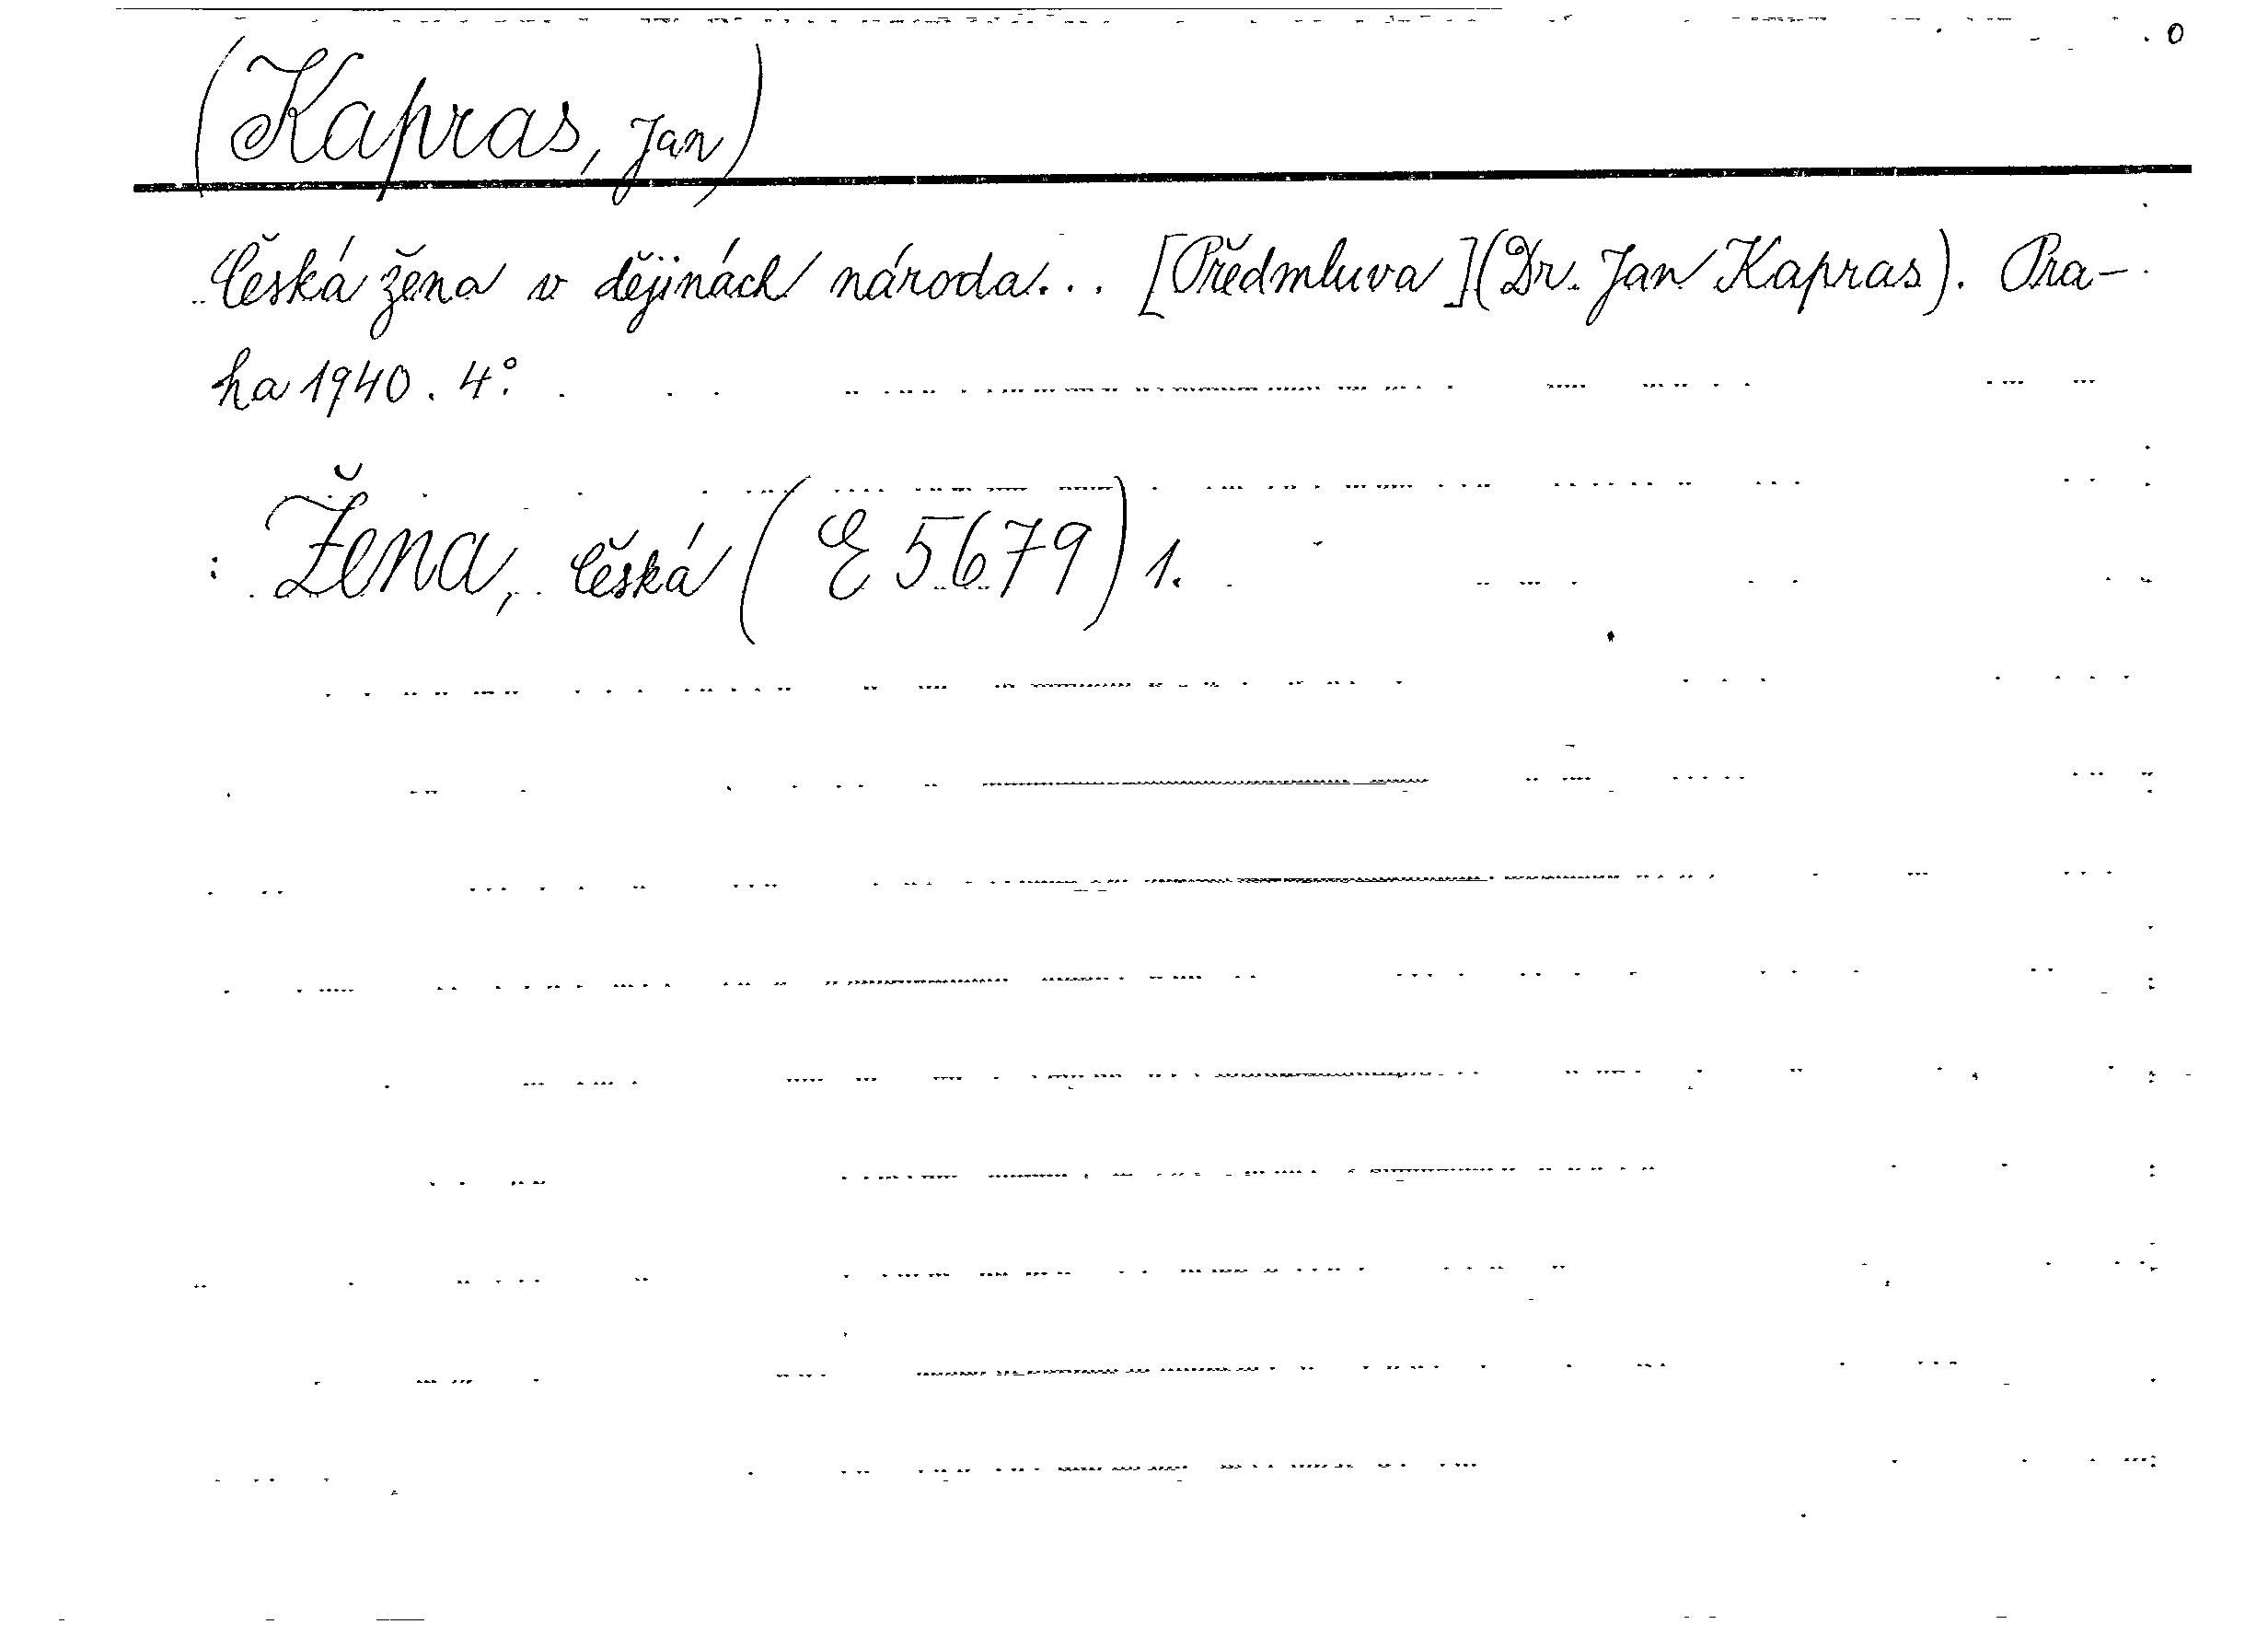 0
(Kapras, Jan)
Česká žena v dějinách národa... [Předmluva](Dr. Jan Kapras). Pra-
ha 1940. 4°.
: Žena, česká (E 5679) 1.